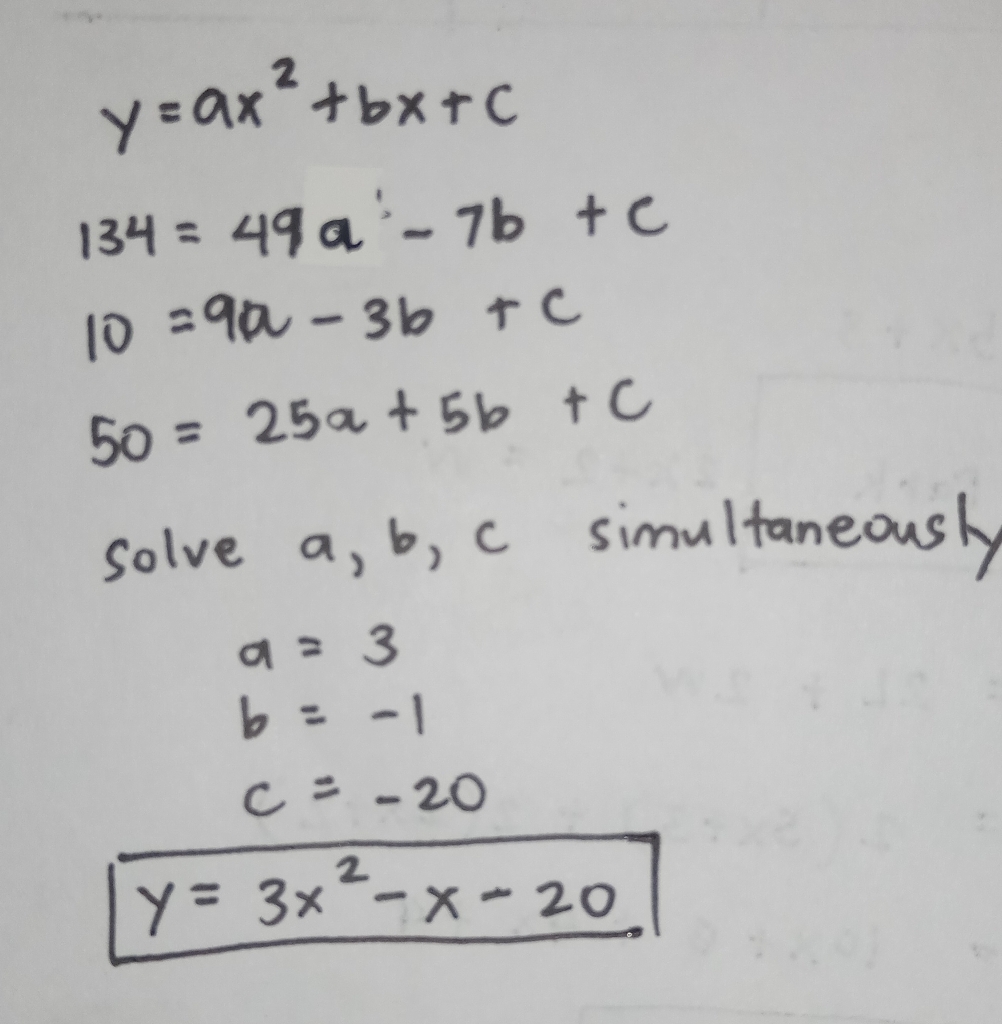 y = ax² + bx + c
134 = 49a - 7b + c
10 = 9a - 3b + c
50 = 25a + 5b + c
solve a, b, c simultaneously
a = 3
b = -1
c = -20
y = 3x² - x - 20